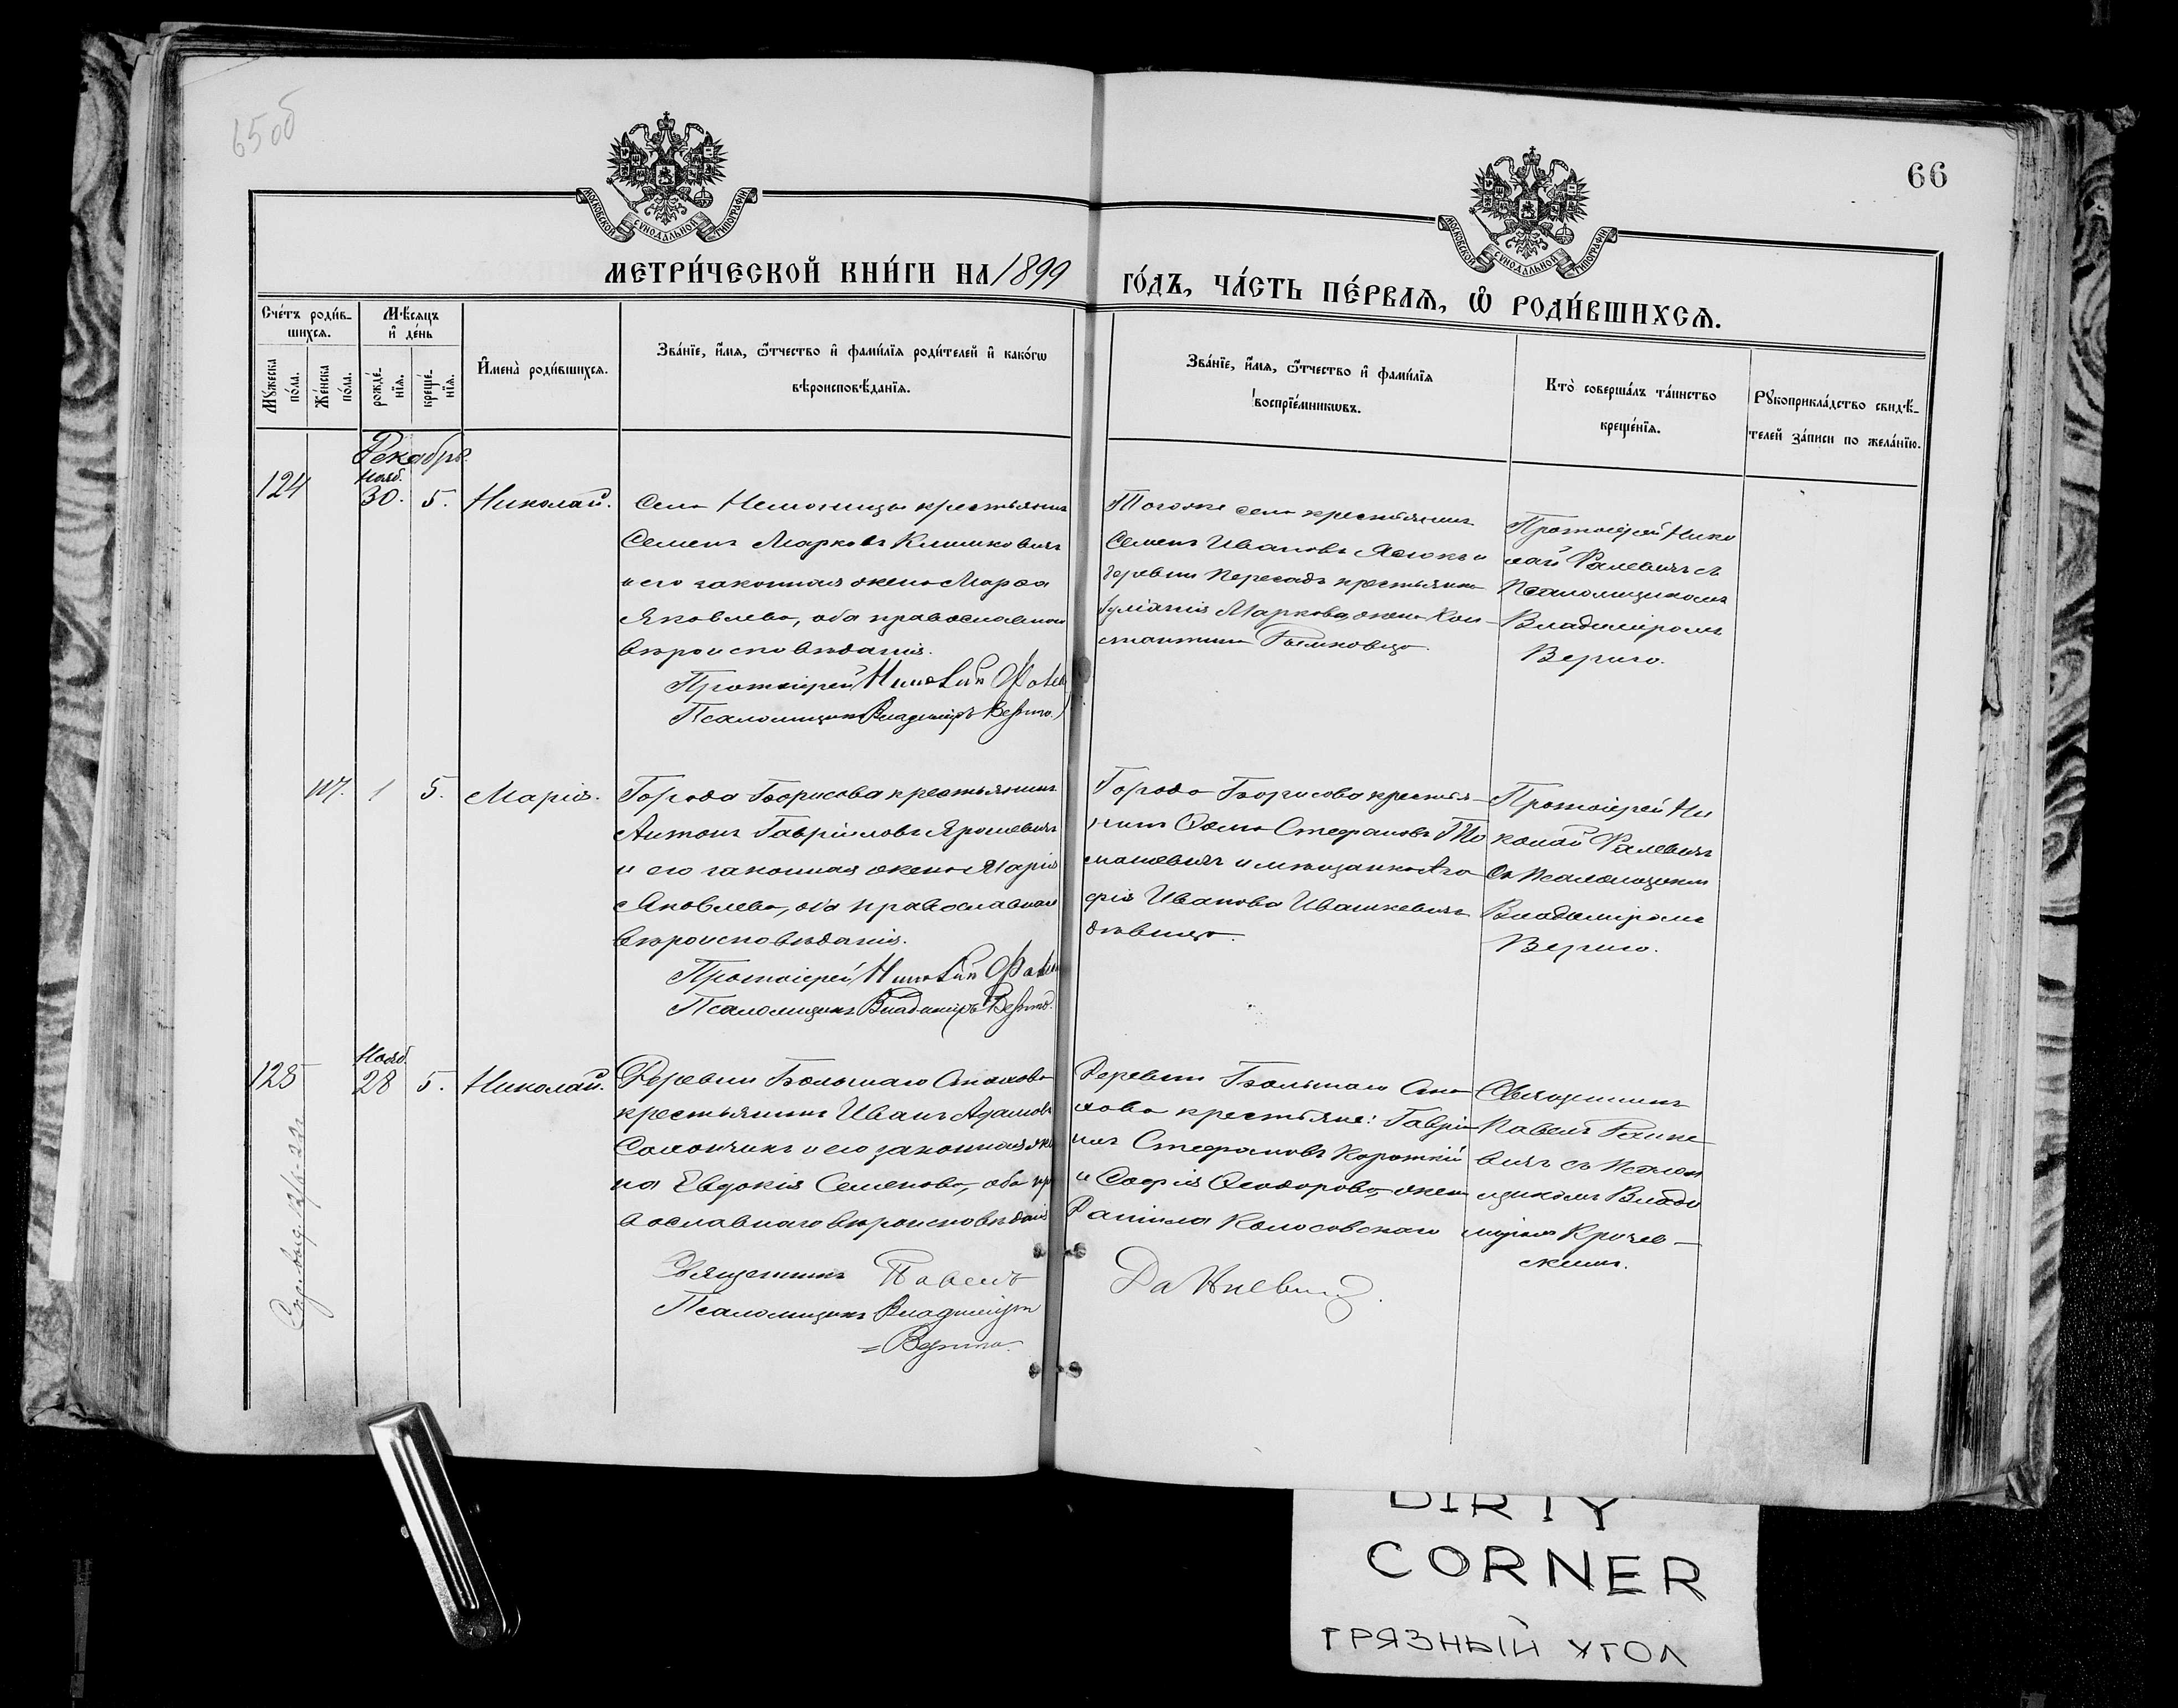 65об
66
МОСКОВСКОЙ СѴНОДАЛЬНОЙ ТИПОГРАФІИ
МОСКОВСКОЙ СѴНОДАЛЬНОЙ ТИПОГРАФІИ
МЕТРИ́ЧЕСКОЙ КНИ́ГИ НА 1899 ГО́ДЪ, ЧА́СТЬ ПЕ́РВАѦ, Ѡ҆ РОДИ́ВШИХСѦ.
Сче́тъ роди́в-
шихсѧ.
Мꙋ́жеска по́ла.
Же́нска по́ла.
Мѣ́сѧцъ
и҆ де́нь
рожде́-
нїѧ.
креще́-
нїѧ.
И҆мена̀ роди́вшихсѧ.
Зва́нїе, и҆́мѧ, ѻ҆́тчество и҆ фами́лїѧ роди́телей и҆ како́гѡ
вѣроисповѣ́данїѧ.
Зва́нїе, и҆́мѧ, ѻ҆́тчество и҆ фами́лїѧ
воспрїе́мникѡвъ.
Кто̀ соверша́лъ та́инство
креще́нїѧ.
Рꙋкоприкла́дство свидѣ́-
телей за́писи по жела́нїю.
Декабрь.
124
Нояб.
30. 5. Николай.
Села Неманицы крестьянинъ
Семенъ Марковъ Климковичъ
и его законная жена Марѳа
Яковлева, оба православнаго
вѣроисповѣданія.
Протоіерей Николай
Псаломщикъ Владиміръ Верига.
Тогоже села крестьянинъ
Семенъ Ивановъ и
деревни Пересадъ крестьянка
Іуліанія Маркова, жена Кон-
стантина
Протоіерей Нико
лай Фалевичъ съ
Псаломщикомъ
Владиміромъ
Верига.
117. 1 5. Марія.
Города Борисова крестьянинъ
Антонъ Гавріиловъ Ярошевичъ
и его законная жена Марія
Яковлева, оба православнаго
вѣроисповѣданія.
Протоіерей Николай
Псаломщикъ Владиміръ Верига.
Города Борисова крестья-
нинъ Ѳома Стефановъ То
машевичъ и мѣщанка Ага
фія Иванова Ивашкевичъ
дѣвица.
Протоіерей Ни
колай Фалевичъ
съ Псаломщикомъ
Владиміромъ
Верига.
125
Нояб.
28 5. Николай.
Деревни Большаго Стахова
крестьянинъ Иванъ Адамовъ
и его законная же
на Евдокія Семенова, оба пра
вославнаго вѣроисповѣданія
Священникъ Павелъ
Псаломщикъ Владиміръ
=Верига.
Деревни Большаго Ста
хова крестьяне: Гаврі
илъ Стефановъ Короткій
и Софія Ѳеодорова, жена
Даніила Колосовскаго
Священникъ
Павелъ
вичъ съ Псалом
щикомъ Влади
міромъ Кричев-
скимъ.
DIRTY
CORNER
ГРЯЗНЫЙ УГОЛ